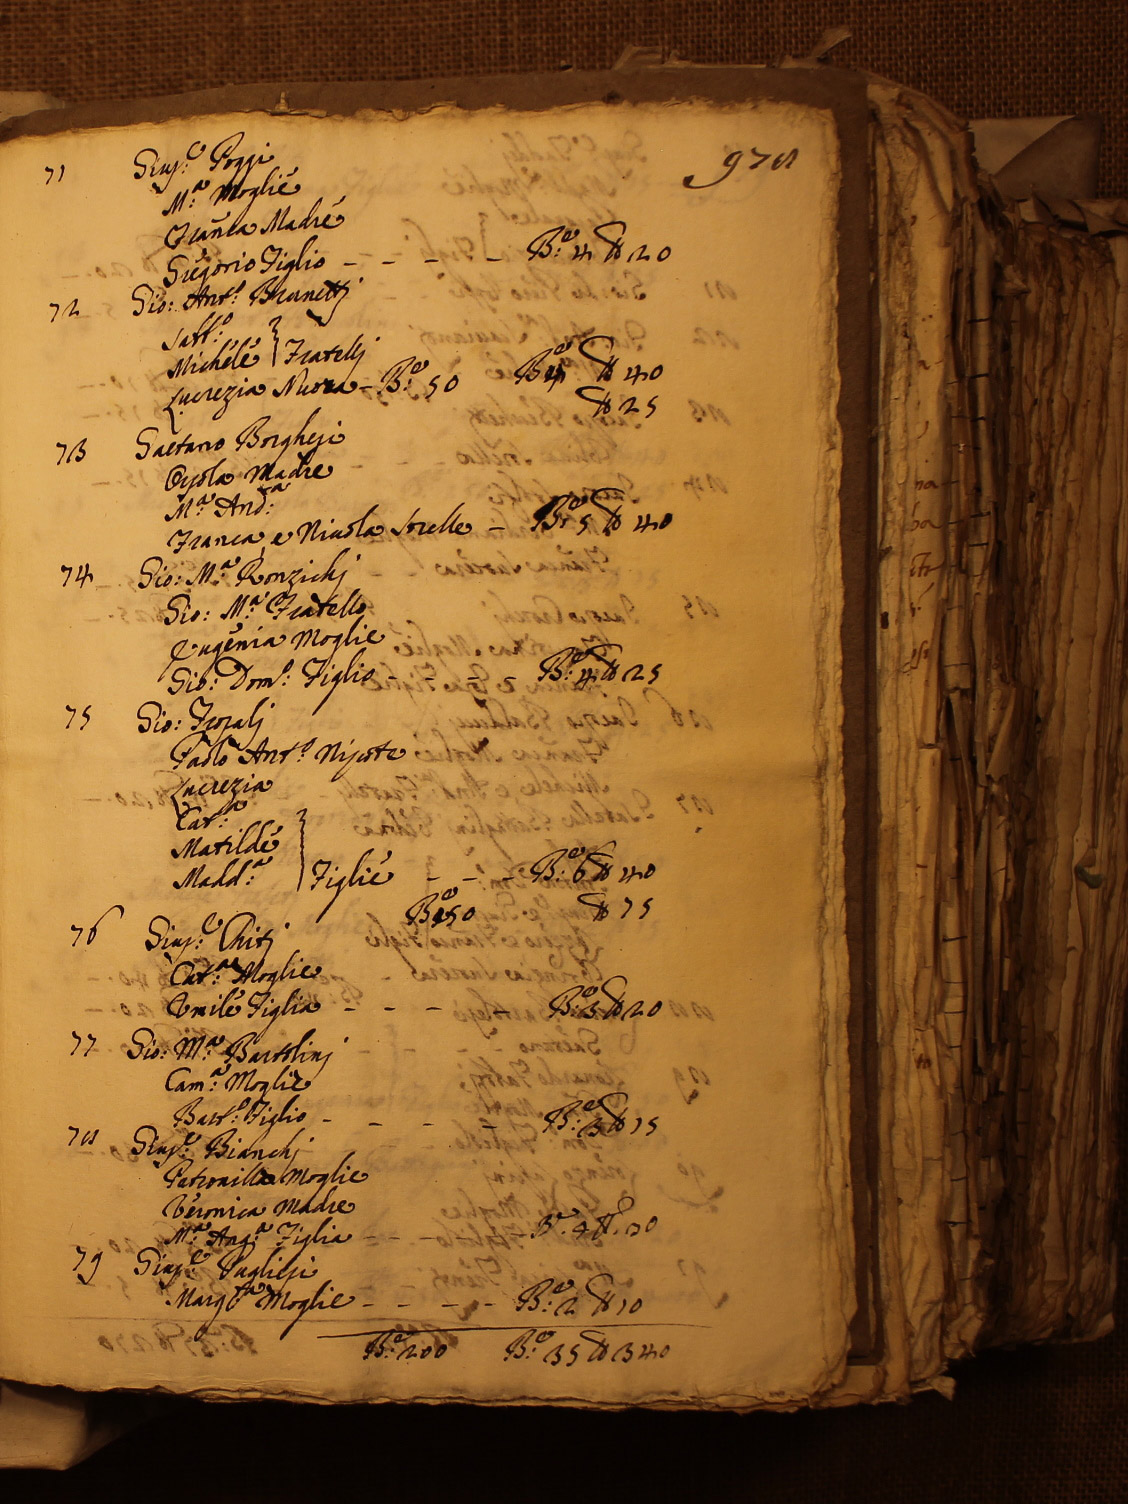 978
71 Giuſ.e Poggi
M.a Moglie
Franca Madre
Gregorio Figlio - - - - B.e 4 ₶ 20
72 Gio: Ant.o Brunettj
Batt.o
Michele } Fratellj B.e 4 ₶ 40
Lucrezia Nuora - B.e 50 ₶ 25
73 Gaetano Borgheſi
Orſola Madre
M.a And.a
Franca, e Nicola Sorelle - B.e 5 ₶ 40
74 Gio: M.a Ronzichj
Gio: M.a Fratello
Eugenia Moglie
Gio: Dom.o Figlio - - - - B.e 4 ₶ 25
75 Gio:
Paolo Ant.o Nipote
Lucrezia
Cat.a
Matilde
Madd.a } Figlie - - - B.e 6 ₶ 40
B.e 150 ₶ 75
76 Giuſ.e Chitj
Cat.a Moglie
Emile Figlia - - - - B.e 3 ₶ 20
77 Gio: M.a Bartolinj
Cam.a Moglie
Bart.o Figlio - - - - B.e 3 ₶ 15
78 Giuſ.e Bianchj
Petronilla Moglie
Veronica Madre
M.a Ang.a Figlia - - - B.e 4 ₶ 30
79 Giuſ.e Puglieſi
Marg.ta Moglie - - - - B.e 2 ₶ 10
B.e 200 B.e 35 ₶ 340